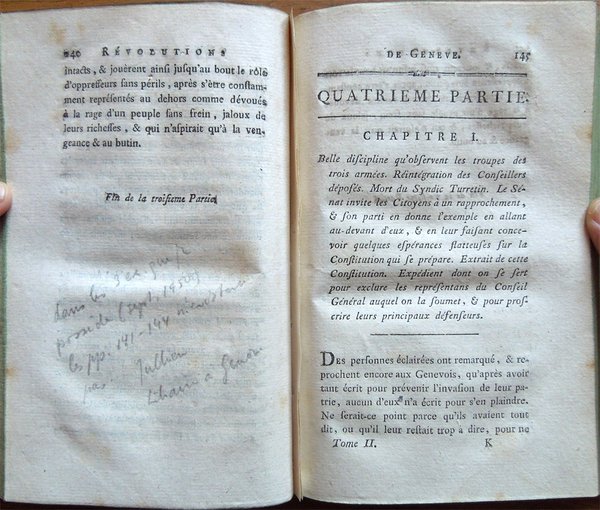 240 RÉVOLUTIONS
intacts, & jouèrent ainsi jusqu'au bout le rôle
d'oppresseurs sans périls, après s'être constam-
ment représentés au dehors comme dévoués
à la rage d'un peuple sans frein, jaloux de
leurs richesses, & qui n'aspirait qu'à la ven-
geance & au butin.
Fin de la troisieme Partie
dans les 3 ex. que je
possède (sept. 1950)
les pp. 141-144
pas Jullien
libraire à Genève
DE GENEVE. 145
QUATRIEME PARTIE.
CHAPITRE I.
Belle discipline qu'observent les troupes des
trois armées. Réintégration des Conseillers
déposés. Mort du Syndic Turretin. Le Sé-
nat invite les Citoyens à un rapprochement,
& son parti en donne l'exemple en allant
au-devant d'eux, & en leur faisant conce-
voir quelques espérances flatteuses sur la
Constitution qui se prépare. Extrait de cette
Constitution. Expédient dont on se sert
pour exclure les représentans du Conseil
Général auquel on la soumet, & pour pros-
crire leurs principaux défenseurs.
DES personnes éclairées ont remarqué, & re-
prochent encore aux Genevois, qu'après avoir
tant écrit pour prévenir l'invasion de leur pa-
trie, aucun d'eux n'a écrit pour s'en plaindre.
Ne serait-ce point parce qu'ils avaient tout
dit, ou qu'il leur restait trop à dire, pour ne
Tome II. K